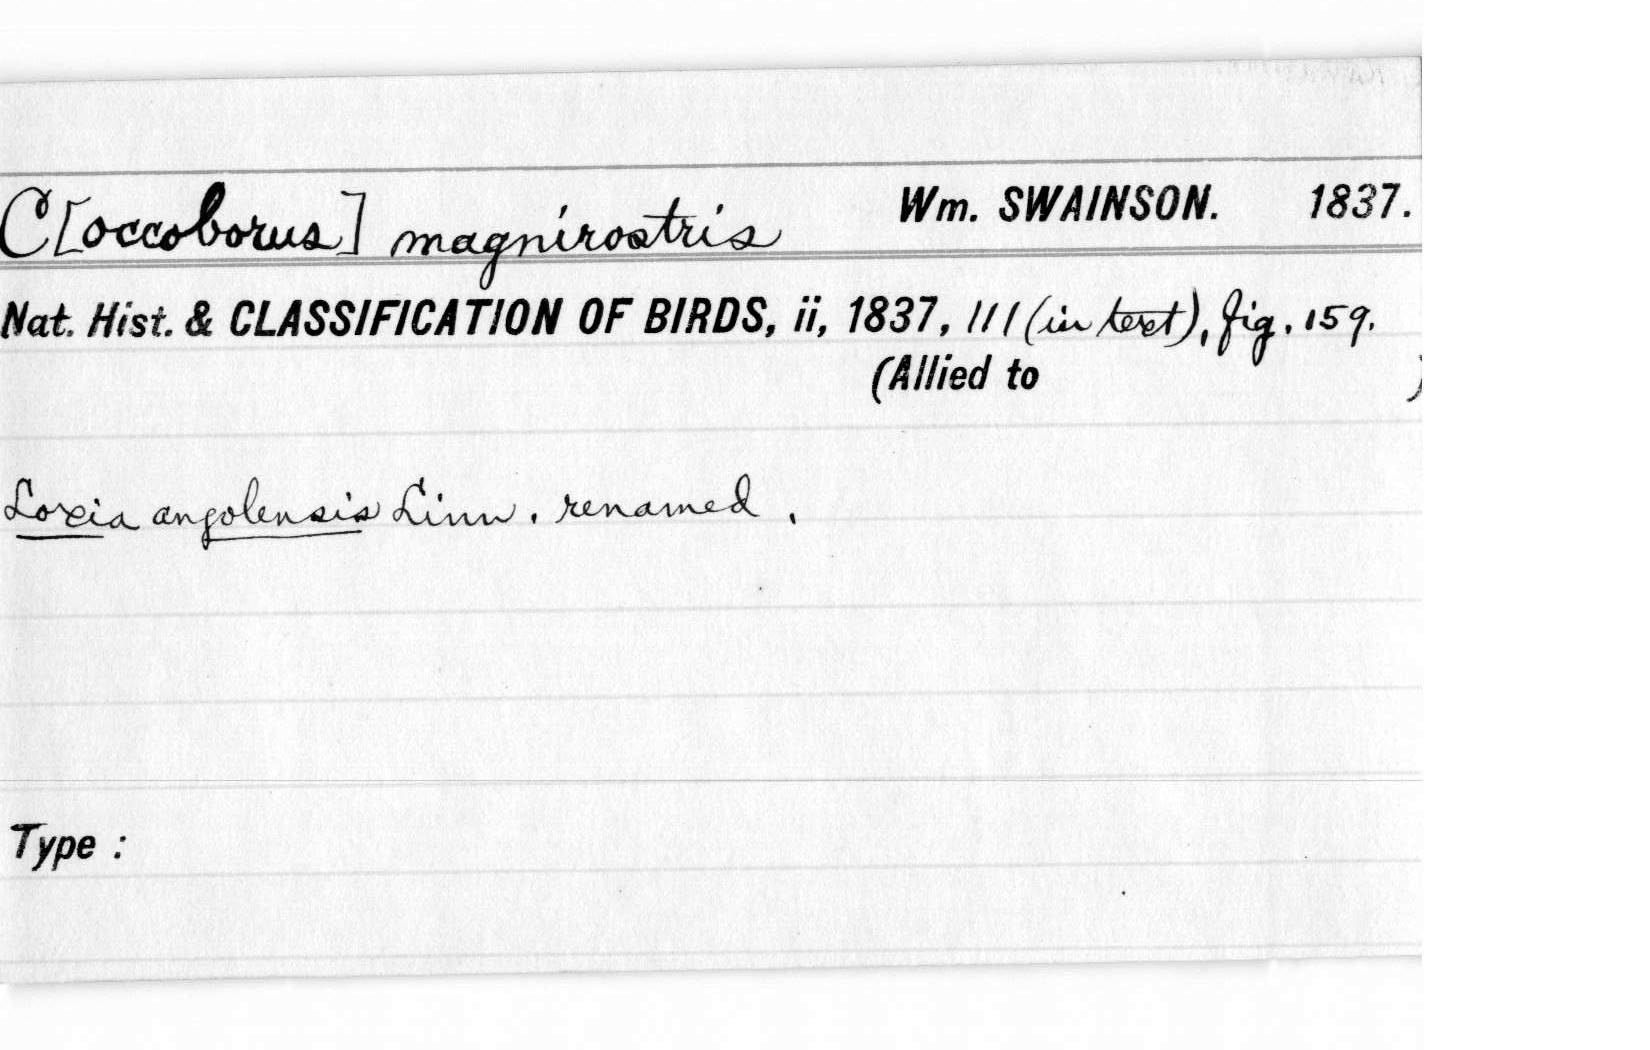 C[occoborus] magnirostris Wm. SWAINSON. 1837.
Nat. Hist. & CLASSIFICATION OF BIRDS, ii, 1837, 111 (in text), fig. 159.
(Allied to )
Loxia angolensis Linn. renamed.
Type :